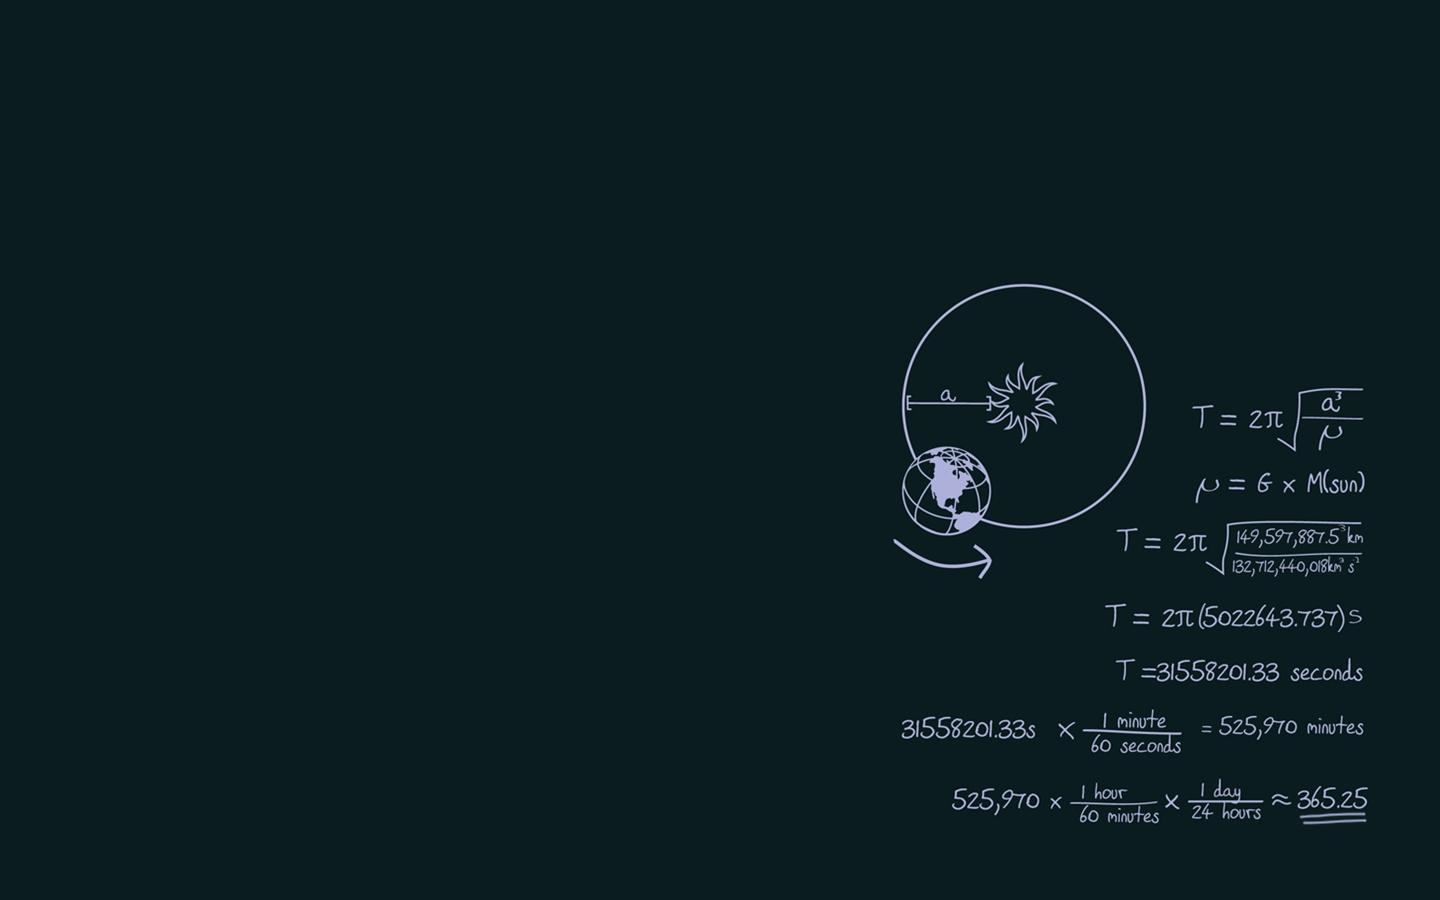 a
T = 2π√(a³/μ)
μ = G x M(sun)
T = 2π√(149,597,887.5³km/132,712,440,018km³s²)
T = 2π(5022643.737)s
T =31558201.33 seconds
31558201.33s x 1 minute/60 seconds = 525,970 minutes
525,970 x 1 hour/60 minutes x 1 day/24 hours ≈ 365.25